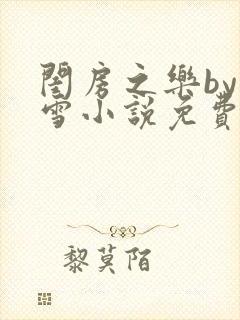 閨房之樂by
雪小說免費
黎莫陌